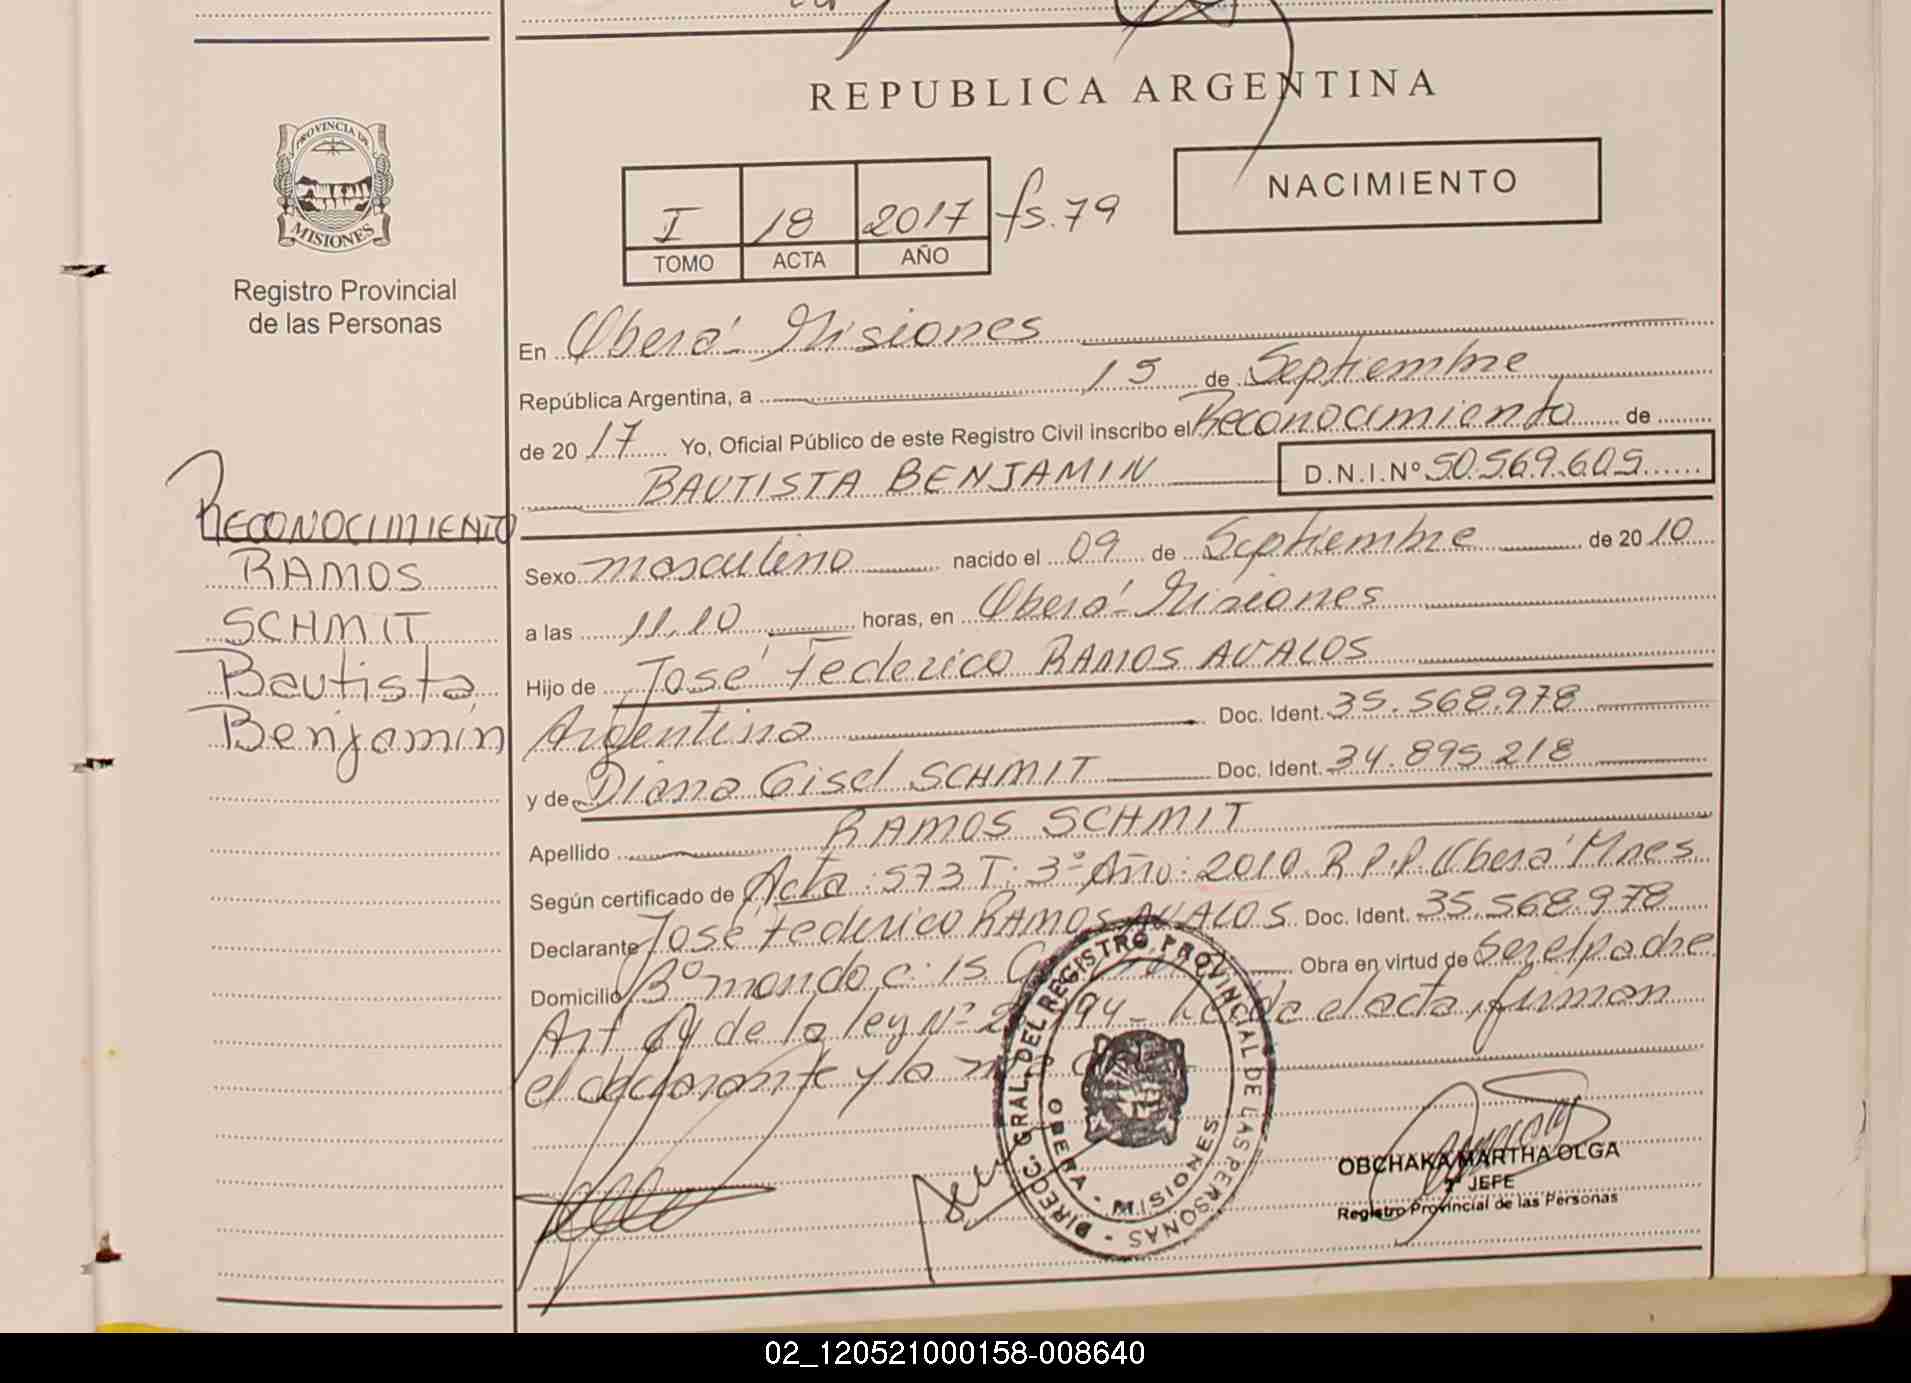 REPUBLICA ARGENTINA
PROVINCIA DE
MISIONES
Registro Provincial
de las Personas
I 18 2017 fs. 79
TOMO ACTA AÑO
NACIMIENTO
En Oberá - Misiones
República Argentina, a 15 de Septiembre
de 2017 Yo, Oficial Público de este Registro Civil inscribo el Reconocimiento de
BAUTISTA BENJAMIN D.N.I.Nº 50.569.605
RECONOCIMIENTO
RAMOS
SCHMIT
Bautista
Benjamín
Sexo masculino nacido el 09 de Septiembre de 2010
a las 11,10 horas, en Oberá - Misiones
Hijo de José Federico RAMOS AVALOS
Argentina Doc. Ident. 35.568.978
y de Diana Gisel SCHMIT Doc. Ident. 34.895.218
Apellido RAMOS SCHMIT
Según certificado de Acta: 573 T: 3º Año: 2010. R.P.P. Oberá Mnes
Declarante José Federico RAMOS AVALOS Doc. Ident. 35.568.978
Domicilio Bº mondo c: 15. Obra en virtud de Ser el padre
Art 64 de la ley Nº Leída el acta, firman
el declarante y la
DIREC. GRAL. DEL REGISTRO PROVINCIAL DE LAS PERSONAS -
OBERA - MISIONES
OBCHAKA MARTHA OLGA
2º JEFE
Registro Provincial de las Personas
02_120521000158-008640